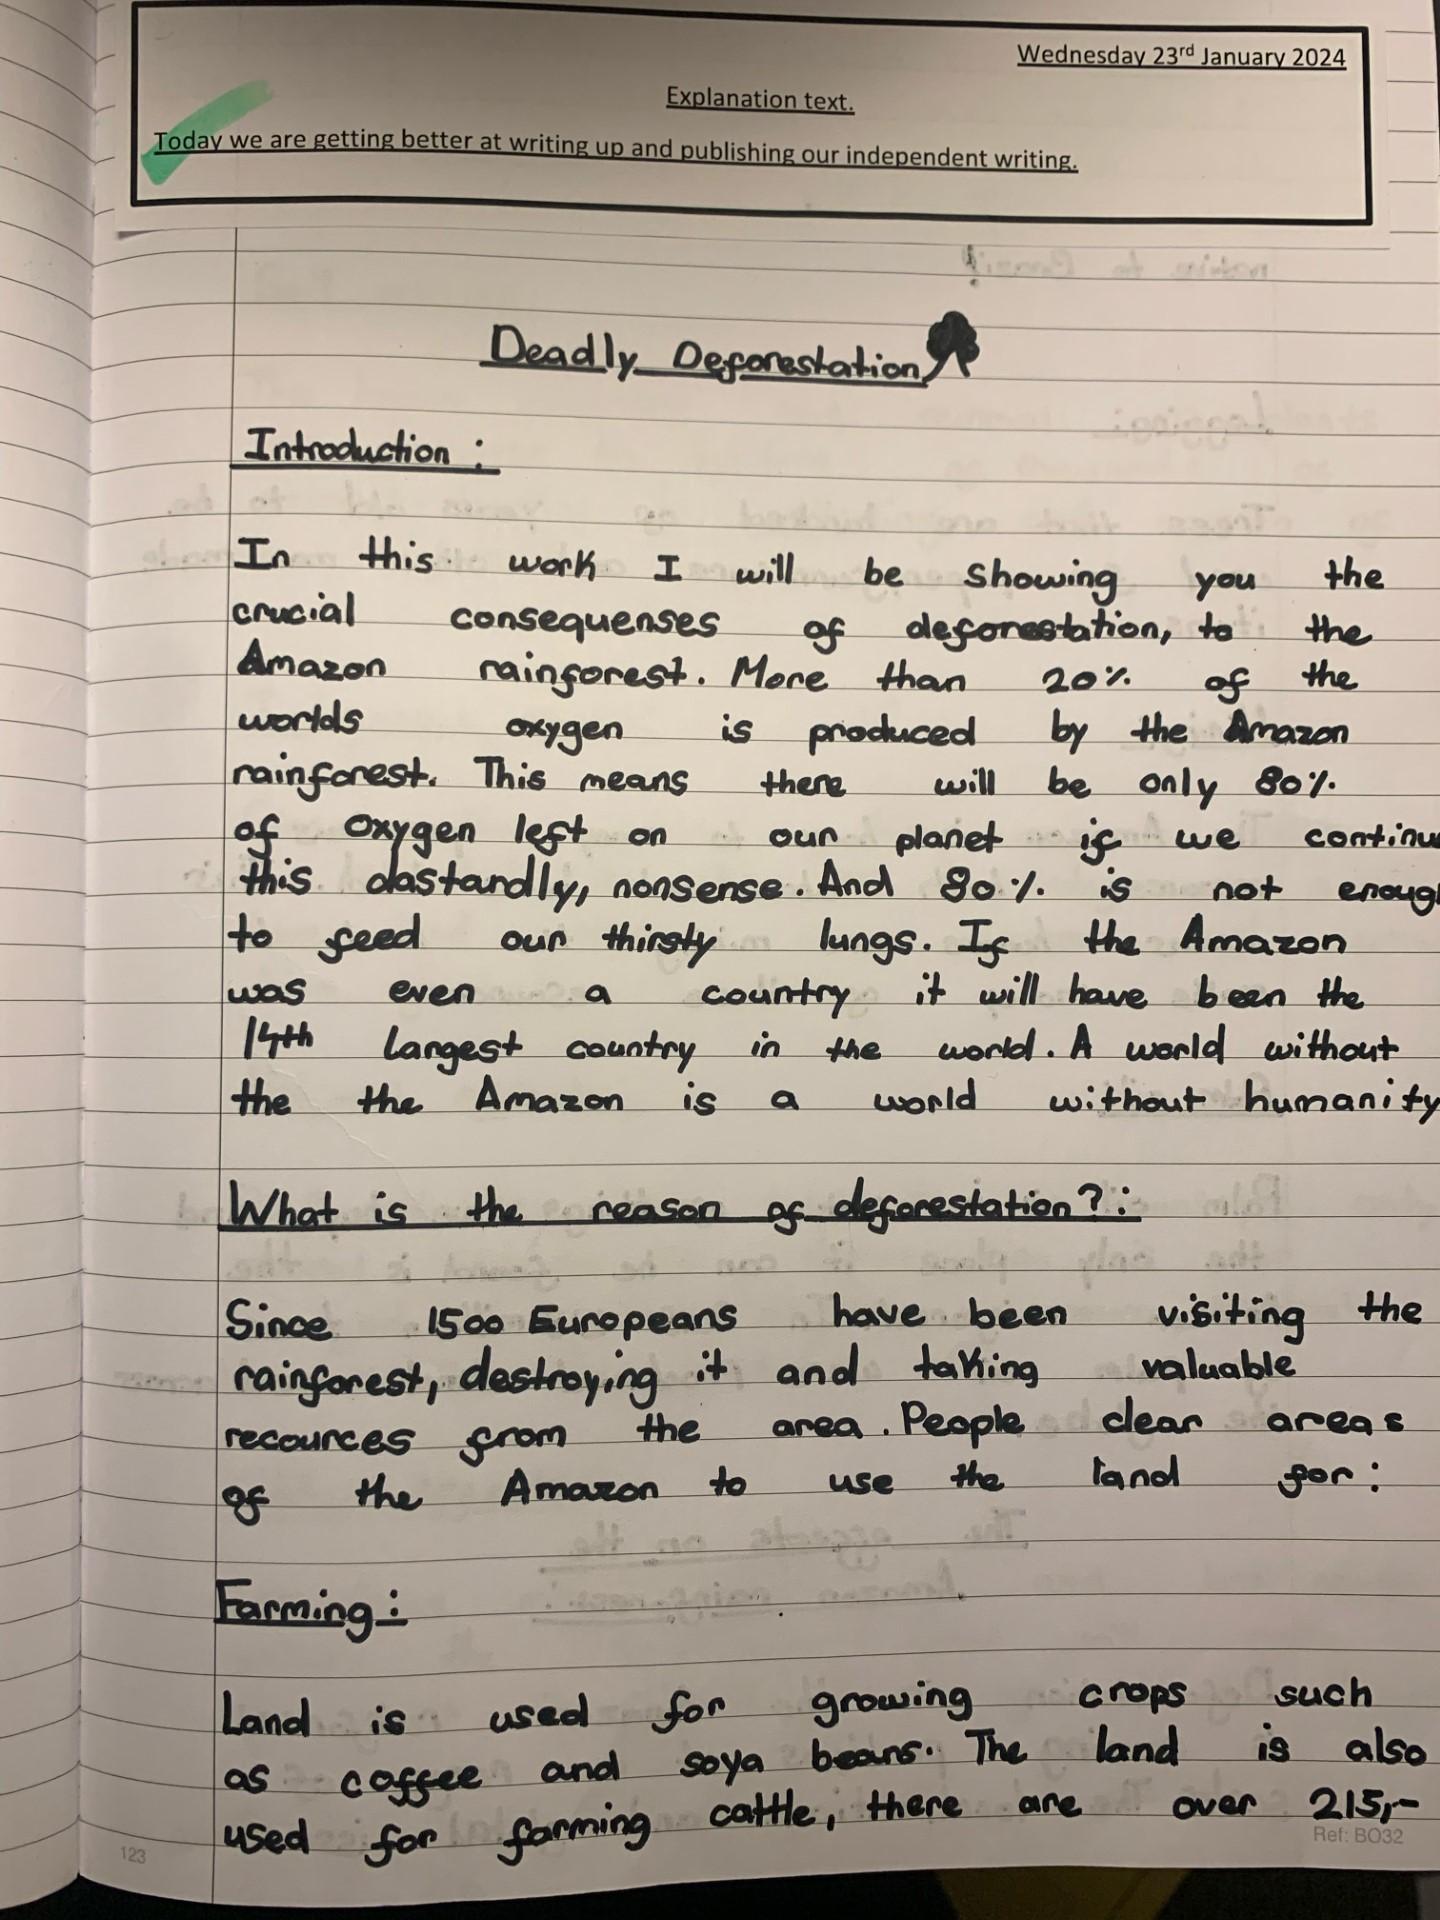 Wednesday 23rd January 2024
Explanation text.
Today we are getting better at writing up and publishing our independent writing.
Deadly Deforestation
Introduction :
In this work I will be showing you the
crucial consequenses of deforestation, to the
Amazon rainforest. More than 20% of the
worlds oxygen is produced by the Amazon
rainforest. This means there will be only 80%
of oxygen left on our planet if we continu
this dastardly, nonsense. And 80% is not enoug
to feed our thirsty lungs. If the Amazon
was even a country it will have been the
14th largest country in the world. A world without
the the Amazon is a world without humanity
What is the reason of deforestation? :
Since 1500 Europeans have been visiting the
rainforest, destroying it and taking valuable
recources from the area. People clear areas
of the Amazon to use the land for :
Farming :
Land is used for growing crops such
as coffee and soya beans. The land is also
used for farming cattle, there are over 215,-
123
Ref: BO32